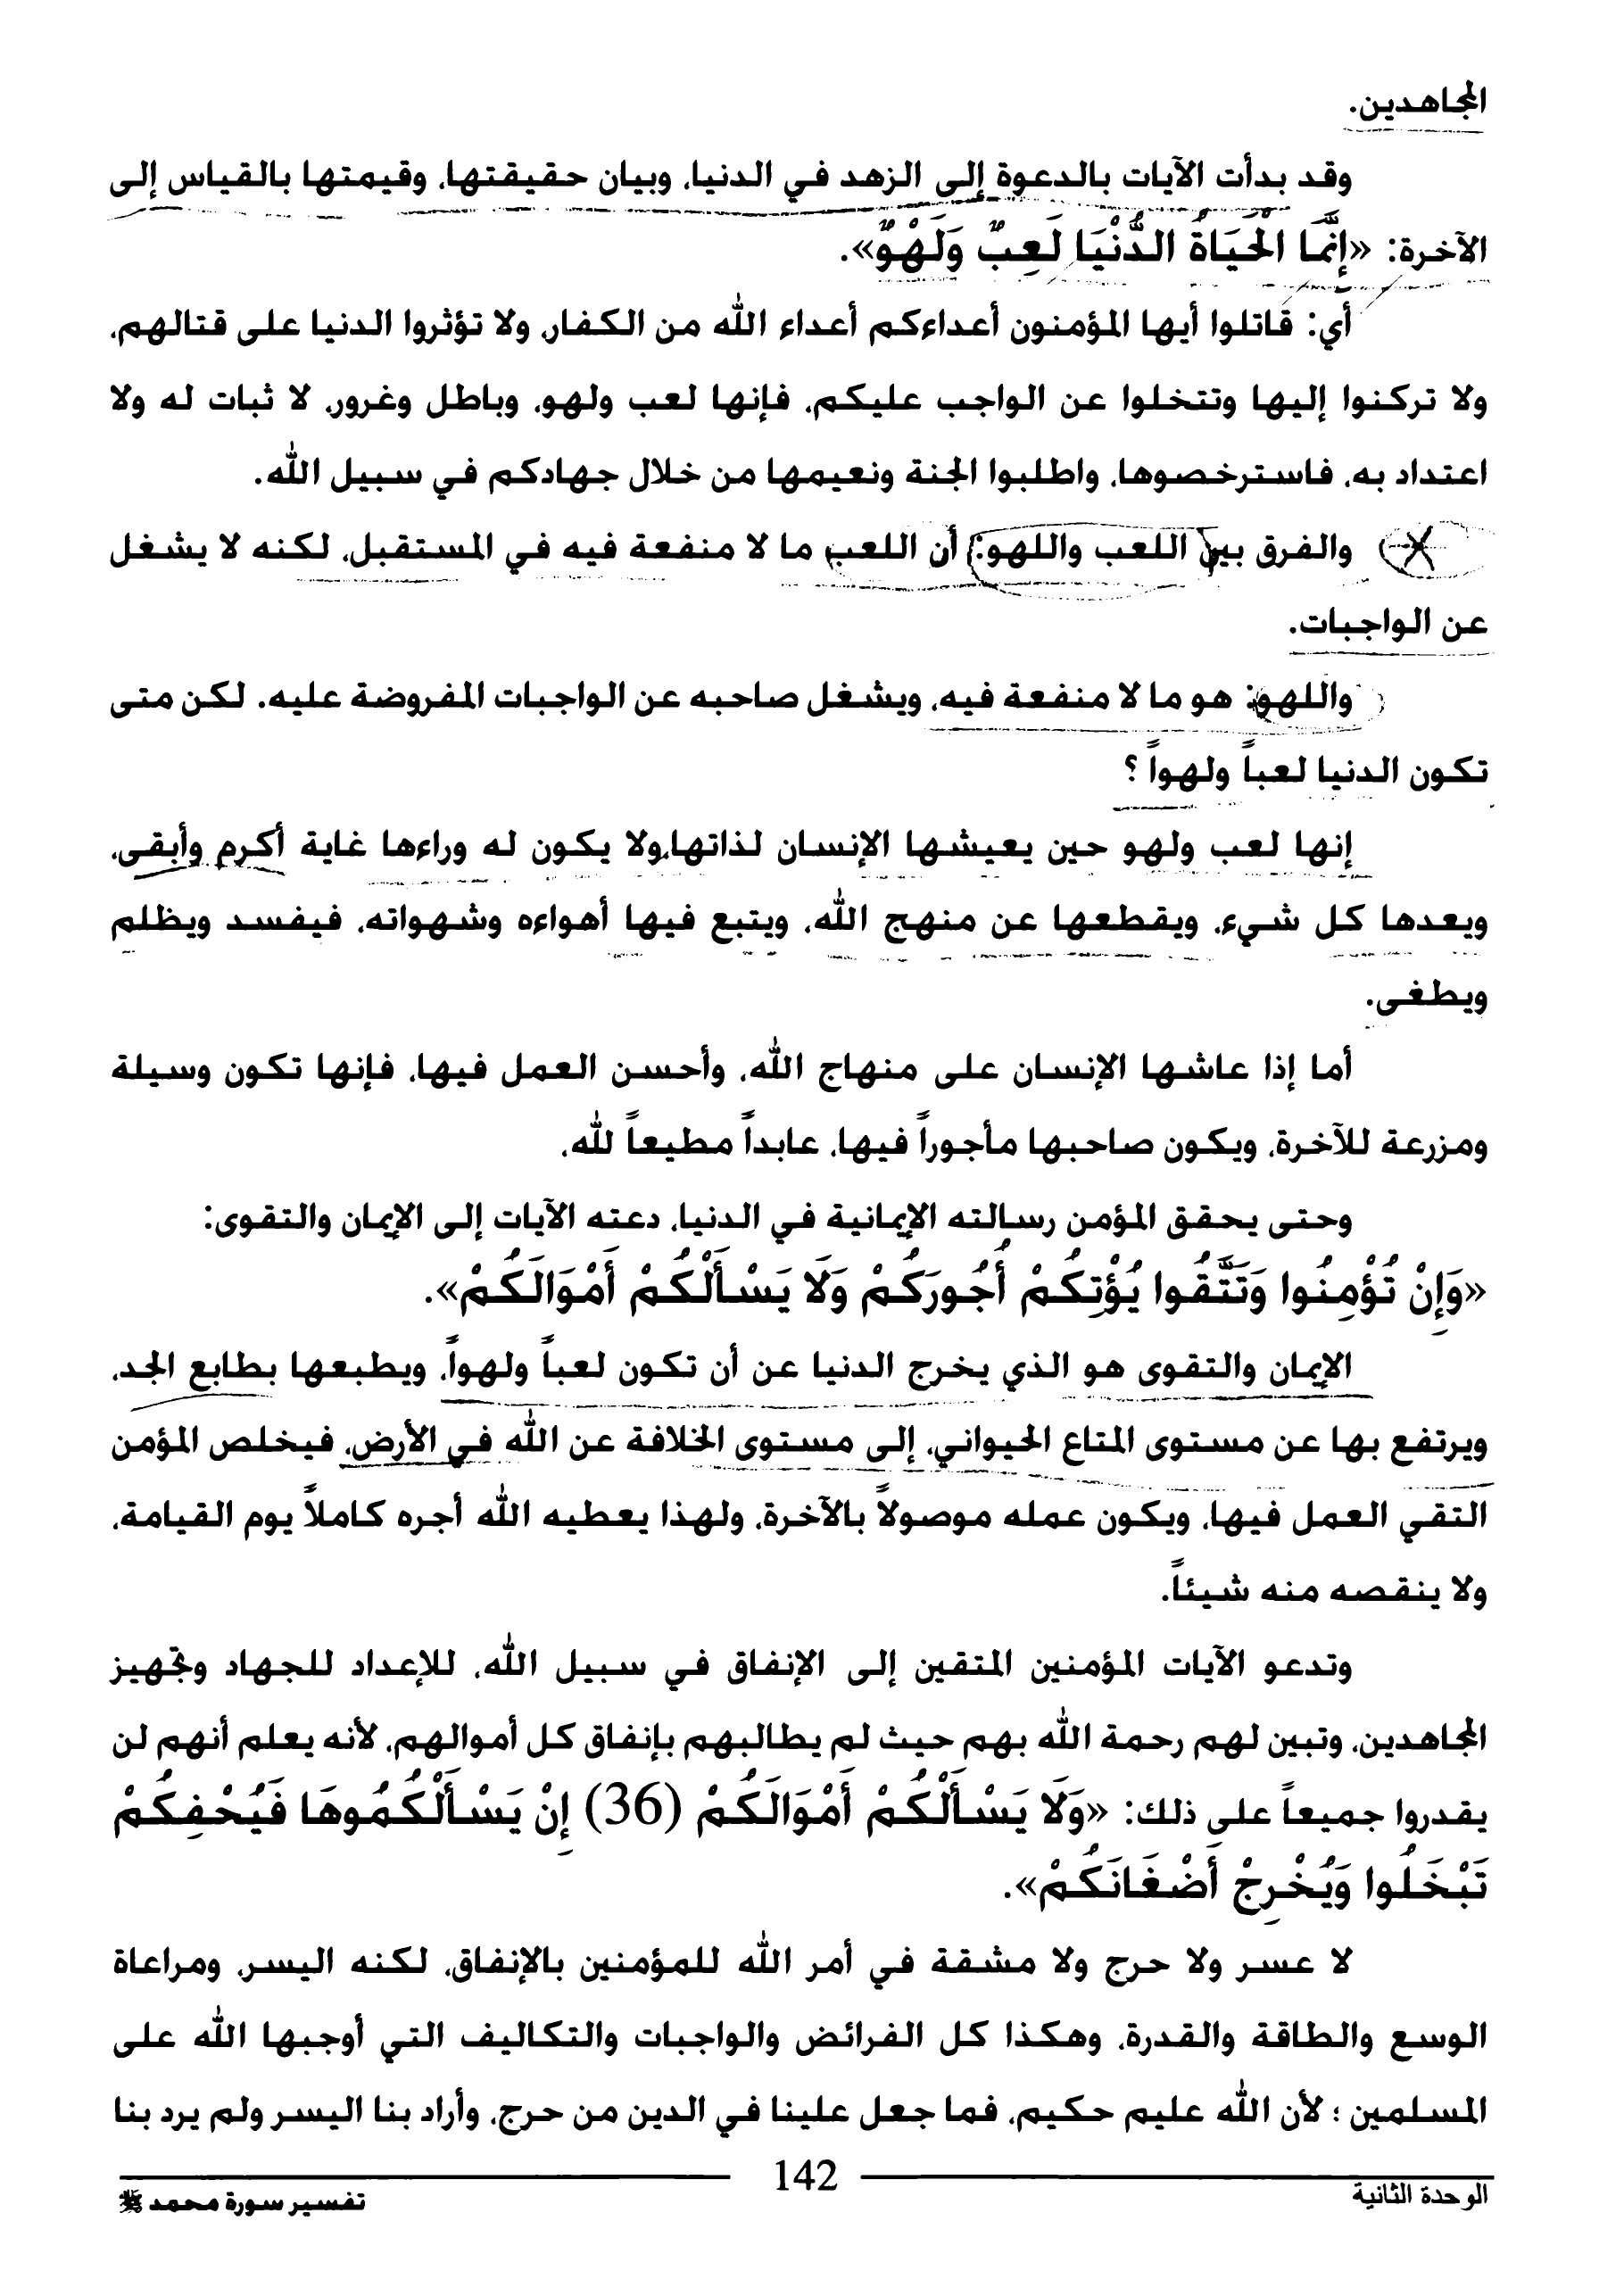 المجاهدين.
وقد بدأت الآيات بالدعوة إلى الزهد في الدنيا، وبيان حقيقتها، وقيمتها بالقياس إلى
الآخرة: «إِنَّمَا الْحَيَاةُ الدُّنْيَا لَعِبٌ وَلَهْوٌ».
أي: قاتلوا أيها المؤمنون أعداءكم أعداء الله من الكفار، ولا تؤثروا الدنيا على قتالهم،
ولا تركنوا إليها وتتخلوا عن الواجب عليكم، فإنها لعب ولهو، وباطل وغرور، لا ثبات له ولا
اعتداد به، فاسترخصوها، واطلبوا الجنة ونعيمها من خلال جهادكم في سبيل الله.
والفرق بين اللعب واللهو: أن اللعب ما لا منفعة فيه في المستقبل، لكنه لا يشغل
عن الواجبات.
واللهو: هو ما لا منفعة فيه، ويشغل صاحبه عن الواجبات المفروضة عليه. لكن متى
تكون الدنيا لعباً ولهواً ؟
إنها لعب ولهو حين يعيشها الإنسان لذاتها،ولا يكون له وراءها غاية أكرم وأبقى،
ويعدها كل شيء، ويقطعها عن منهج الله، ويتبع فيها أهواءه وشهواته، فيفسد ويظلم
ويطغى.
أما إذا عاشها الإنسان على منهاج الله، وأحسن العمل فيها، فإنها تكون وسيلة
ومزرعة للآخرة، ويكون صاحبها مأجوراً فيها، عابداً مطيعاً لله،
وحتى يحقق المؤمن رسالته الإيمانية في الدنيا، دعته الآيات إلى الإيمان والتقوى:
«وَإِنْ تُؤْمِنُوا وَتَتَّقُوا يُؤْتِكُمْ أُجُورَكُمْ وَلَا يَسْأَلْكُمْ أَمْوَالَكُمْ».
الإيمان والتقوى هو الذي يخرج الدنيا عن أن تكون لعباً ولهواً، ويطبعها بطابع الجد،
ويرتفع بها عن مستوى المتاع الحيواني، إلى مستوى الخلافة عن الله في الأرض، فيخلص المؤمن
التقي العمل فيها، ويكون عمله موصولاً بالآخرة، ولهذا يعطيه الله أجره كاملاً يوم القيامة،
ولا ينقصه منه شيئاً.
وتدعو الآيات المؤمنين المتقين إلى الإنفاق في سبيل الله، للإعداد للجهاد وتجهيز
المجاهدين، وتبين لهم رحمة الله بهم حيث لم يطالبهم بإنفاق كل أموالهم، لأنه يعلم أنهم لن
يقدروا جميعاً على ذلك: «وَلَا يَسْأَلْكُمْ أَمْوَالَكُمْ (36) إِنْ يَسْأَلْكُمُوهَا فَيُحْفِكُمْ
تَبْخَلُوا وَيُخْرِجْ أَضْغَانَكُمْ».
لا عسر ولا حرج ولا مشقة في أمر الله للمؤمنين بالإنفاق، لكنه اليسر، ومراعاة
الوسع والطاقة والقدرة، وهكذا كل الفرائض والواجبات والتكاليف التي أوجبها الله على
المسلمين ؛ لأن الله عليم حكيم، فما جعل علينا في الدين من حرج، وأراد بنا اليسر ولم يرد بنا
الوحدة الثانية 142 تفسير سورة محمد ﷺ